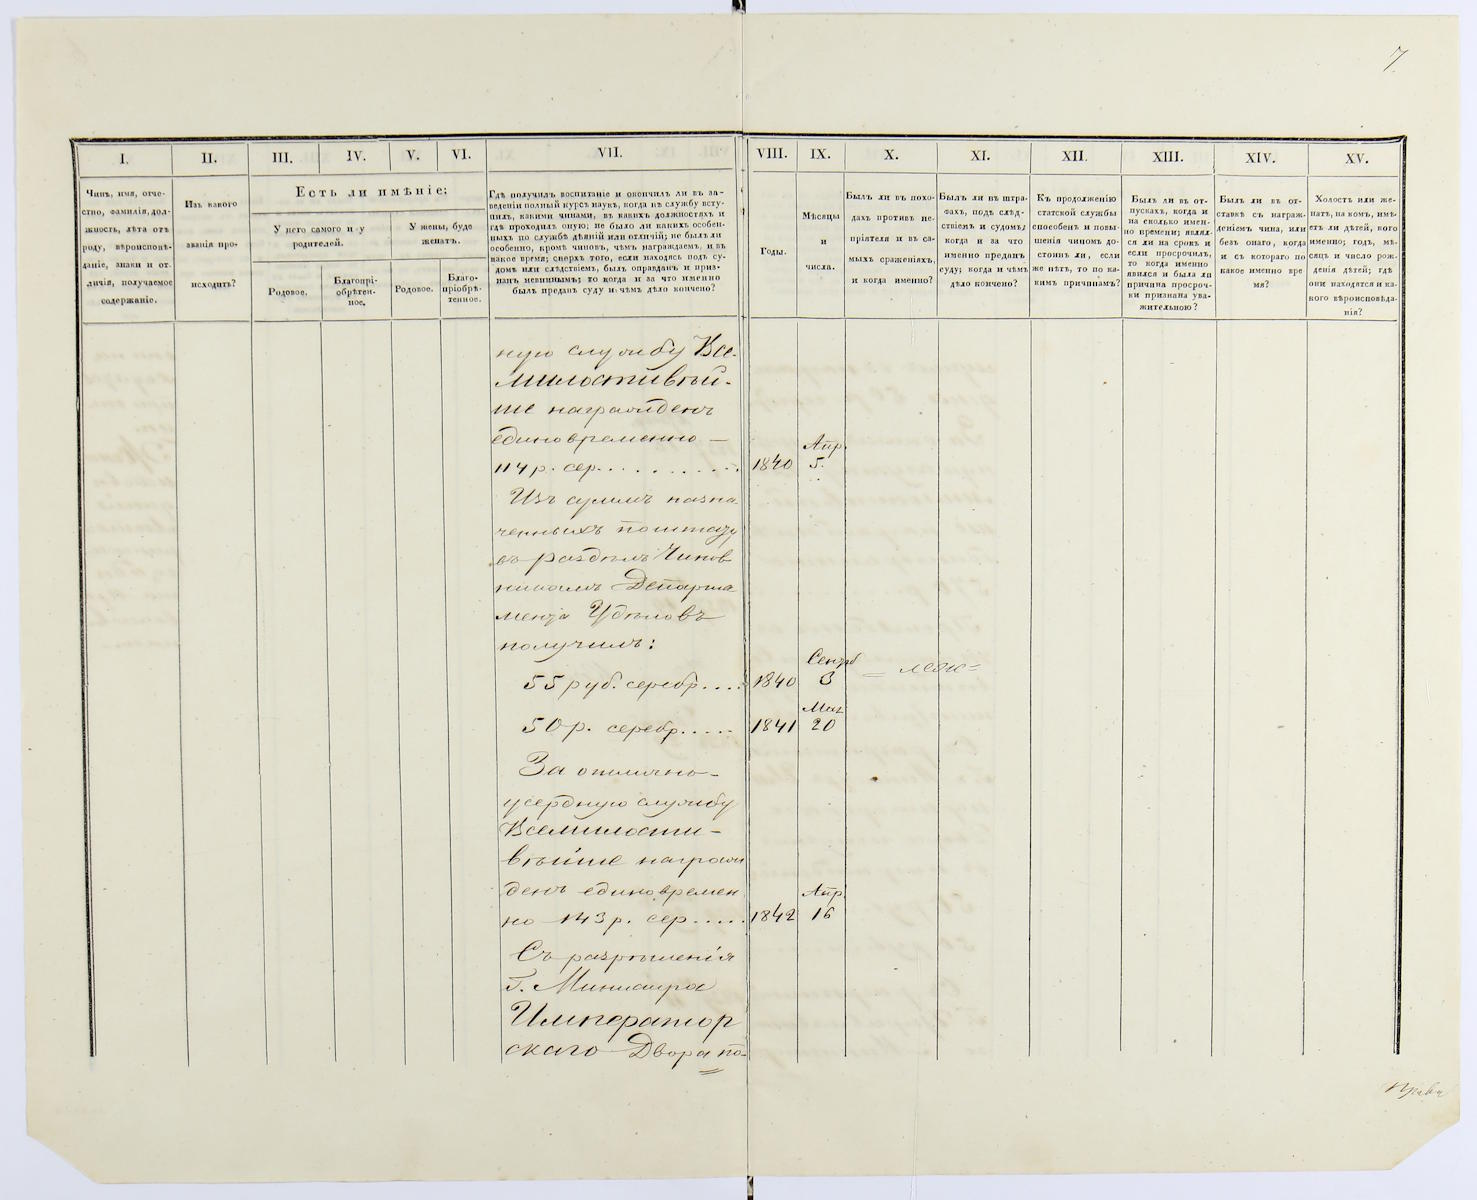 7
I.
II.
III.
IV.
V.
VI.
VII.
VIII.
IX.
X.
XI.
XII.
XIII.
XIV.
XV.
Чинъ, имя, отче-
ство, фамилія, дол-
жность, лѣта отъ
роду, вѣроисповѣ-
даніе, знаки и от-
личія, получаемое
содержаніе.
Изъ какого
званія про-
исходитъ?
Есть ли имѣніе:
У него самого и у
родителей.
У жены, буде
женатъ.
Родовое.
Благопрі-
обрѣтен-
ное.
Родовое.
Благо-
пріобрѣ-
тенное.
Гдѣ получилъ воспитаніе и окончилъ ли въ за-
веденіи полный курсъ наукъ, когда въ службу всту-
пилъ, какими чинами, въ какихъ должностяхъ и
гдѣ проходилъ оную; не было ли какихъ особен-
ныхъ по службѣ дѣяній или отличій; не былъ ли
особенно, кромѣ чиновъ, чѣмъ награждаемъ, и въ
какое время; сверхъ того, если находясь подъ су-
домъ или слѣдствіемъ, былъ оправданъ и приз-
нанъ невиннымъ; то когда и за что именно
былъ преданъ суду и чѣмъ дѣло кончено?
Годы.
Мѣсяцы
и
числа.
Былъ ли въ похо-
дахъ противъ не-
пріятеля и въ са-
мыхъ сраженіяхъ,
и когда именно?
Былъ ли въ штра-
фахъ, подъ слѣд-
ствіемъ и судомъ;
когда и за что
именно преданъ
суду; когда и чѣмъ
дѣло кончено?
Къ продолженію
статской службы
способенъ и повы-
шенія чиномъ до-
стоинъ ли, если
же нѣтъ, то по ка-
кимъ причинамъ?
Былъ ли въ от-
пускахъ, когда и
на сколько имен-
но времени; являл-
ся ли на срокъ и
если просрочилъ,
то когда именно
явился и была ли
причина просроч-
ки признана ува-
жительною?
Былъ ли въ от-
ставкѣ съ награж-
деніемъ чина, или
безъ онаго, когда
и съ котораго по
какое именно вре
мя?
Холостъ или же-
натъ, на комъ, имѣ-
етъ ли дѣтей, кого
именно; годъ, мѣ-
сяцъ и число рож-
денія дѣтей; гдѣ
они находятся и ка-
кого вѣроисповѣда-
нія?
ную службу Все-
милостивѣй-
ше награжденъ
единовременно —
114 р. сер. . . . . . . . . . 1840 Апр. 5.
Изъ суммъ назна
ченныхъ по штату
въ раздѣлъ Чинов
никамъ Департа
мента Удѣловъ
получилъ:
55 руб. серебр. . . . 1840 Сентяб 3
50 р. серебр. . . . . 1841 Мая 20
За отлично-
усердную службу
Всемилости-
вѣйше награж
денъ единовремен
но 143 р. сер . . . . . 1842 Апр. 16
Съ разрѣшенія
Г. Министра
Император
скаго Двора по-